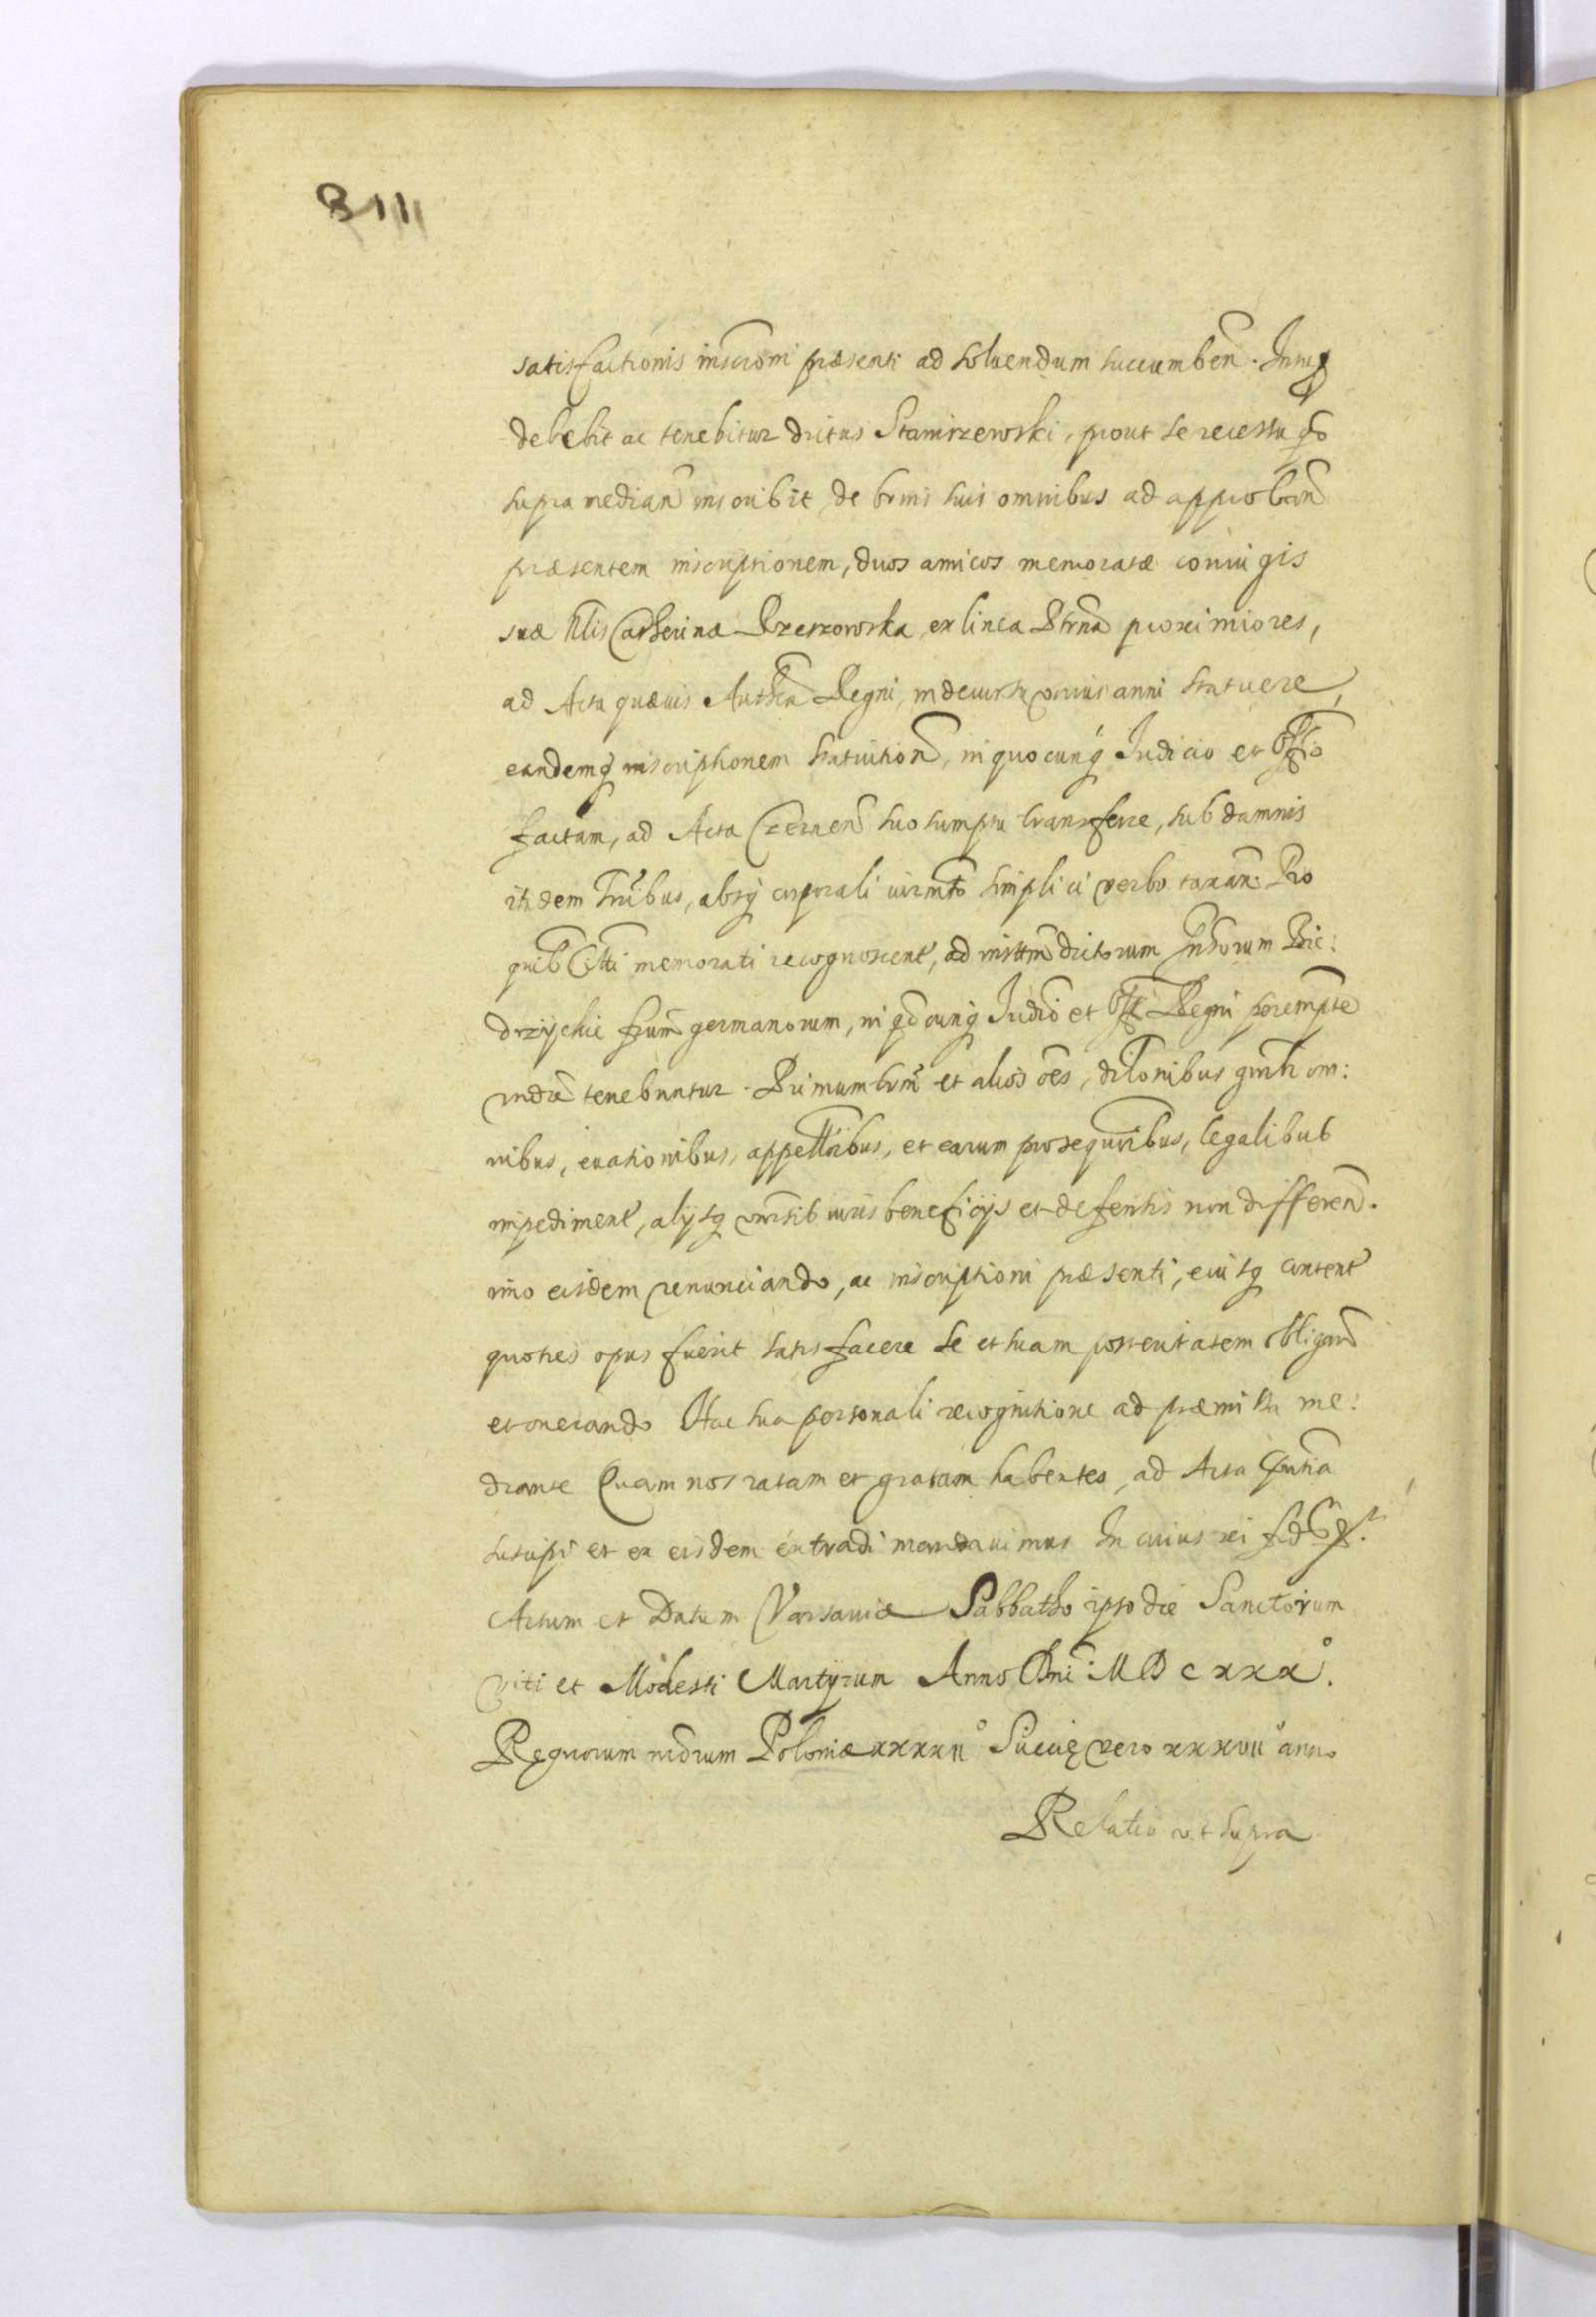 811
satisfactionis inscrōni præsenti ad soluendum succumben̄. Insup
debebit ac tenebitur dictus Stamirzewski, prout se recessu quo
supra median̄ inscribit de bonis suis omnibus ad approban̄
præsentem inscriptionem, duos amicos memoratæ coniugis
suæ Nlis Catherinæ Rzeszowska ex linea Ptrna proximiores,
ad Acta quæuis Authca Regni, in decursu vnius anni statuere,
eandemq inscriptionem statuition̄, in quocunq Judicio et Offio
factam, ad Acta Czernen̄ suo sumptu transferre, sub damnis
itidem tribus, absq corporali iurmto simplici verbo taxan̄. Pro
quib Citti memorati recognoscent, ad insttm dictorum Insorum Bie:
drzyckie frum germanorum, in qdcunq Judicio et Offo Regni peremptε
rndre tenebuntur. Primum trm et alios oēs, dilōnibus gnrli om:
nibus, euationibus, appellōibus, et earum prosequtibus, legalibus
impediment, alysq vnrsib iuris beneficijs et defensis non differen̄.
imo eisdem renunciando, ac inscriptioni præsenti, eiusq content
quoties opus fuerit satisfacere se et suam posteritatem obligan̄do
et onerando Hac sua personali recognitione ad præmissa me:
diante Quam nos ratam et gratam habentes, ad Acta pntia
suscipi et ex eisdem extradi mandauimus In cuius rei fid
Actum et Datum Varsauiæ Sabbatho ipso die Sanctorum
Viti et Modesti Martyrum Anno Dni MDCXXX°.
Regnorum nrorum Poloniæ xxxxii° Sueciæ vero xxxvii° anno
Relatio vt supra